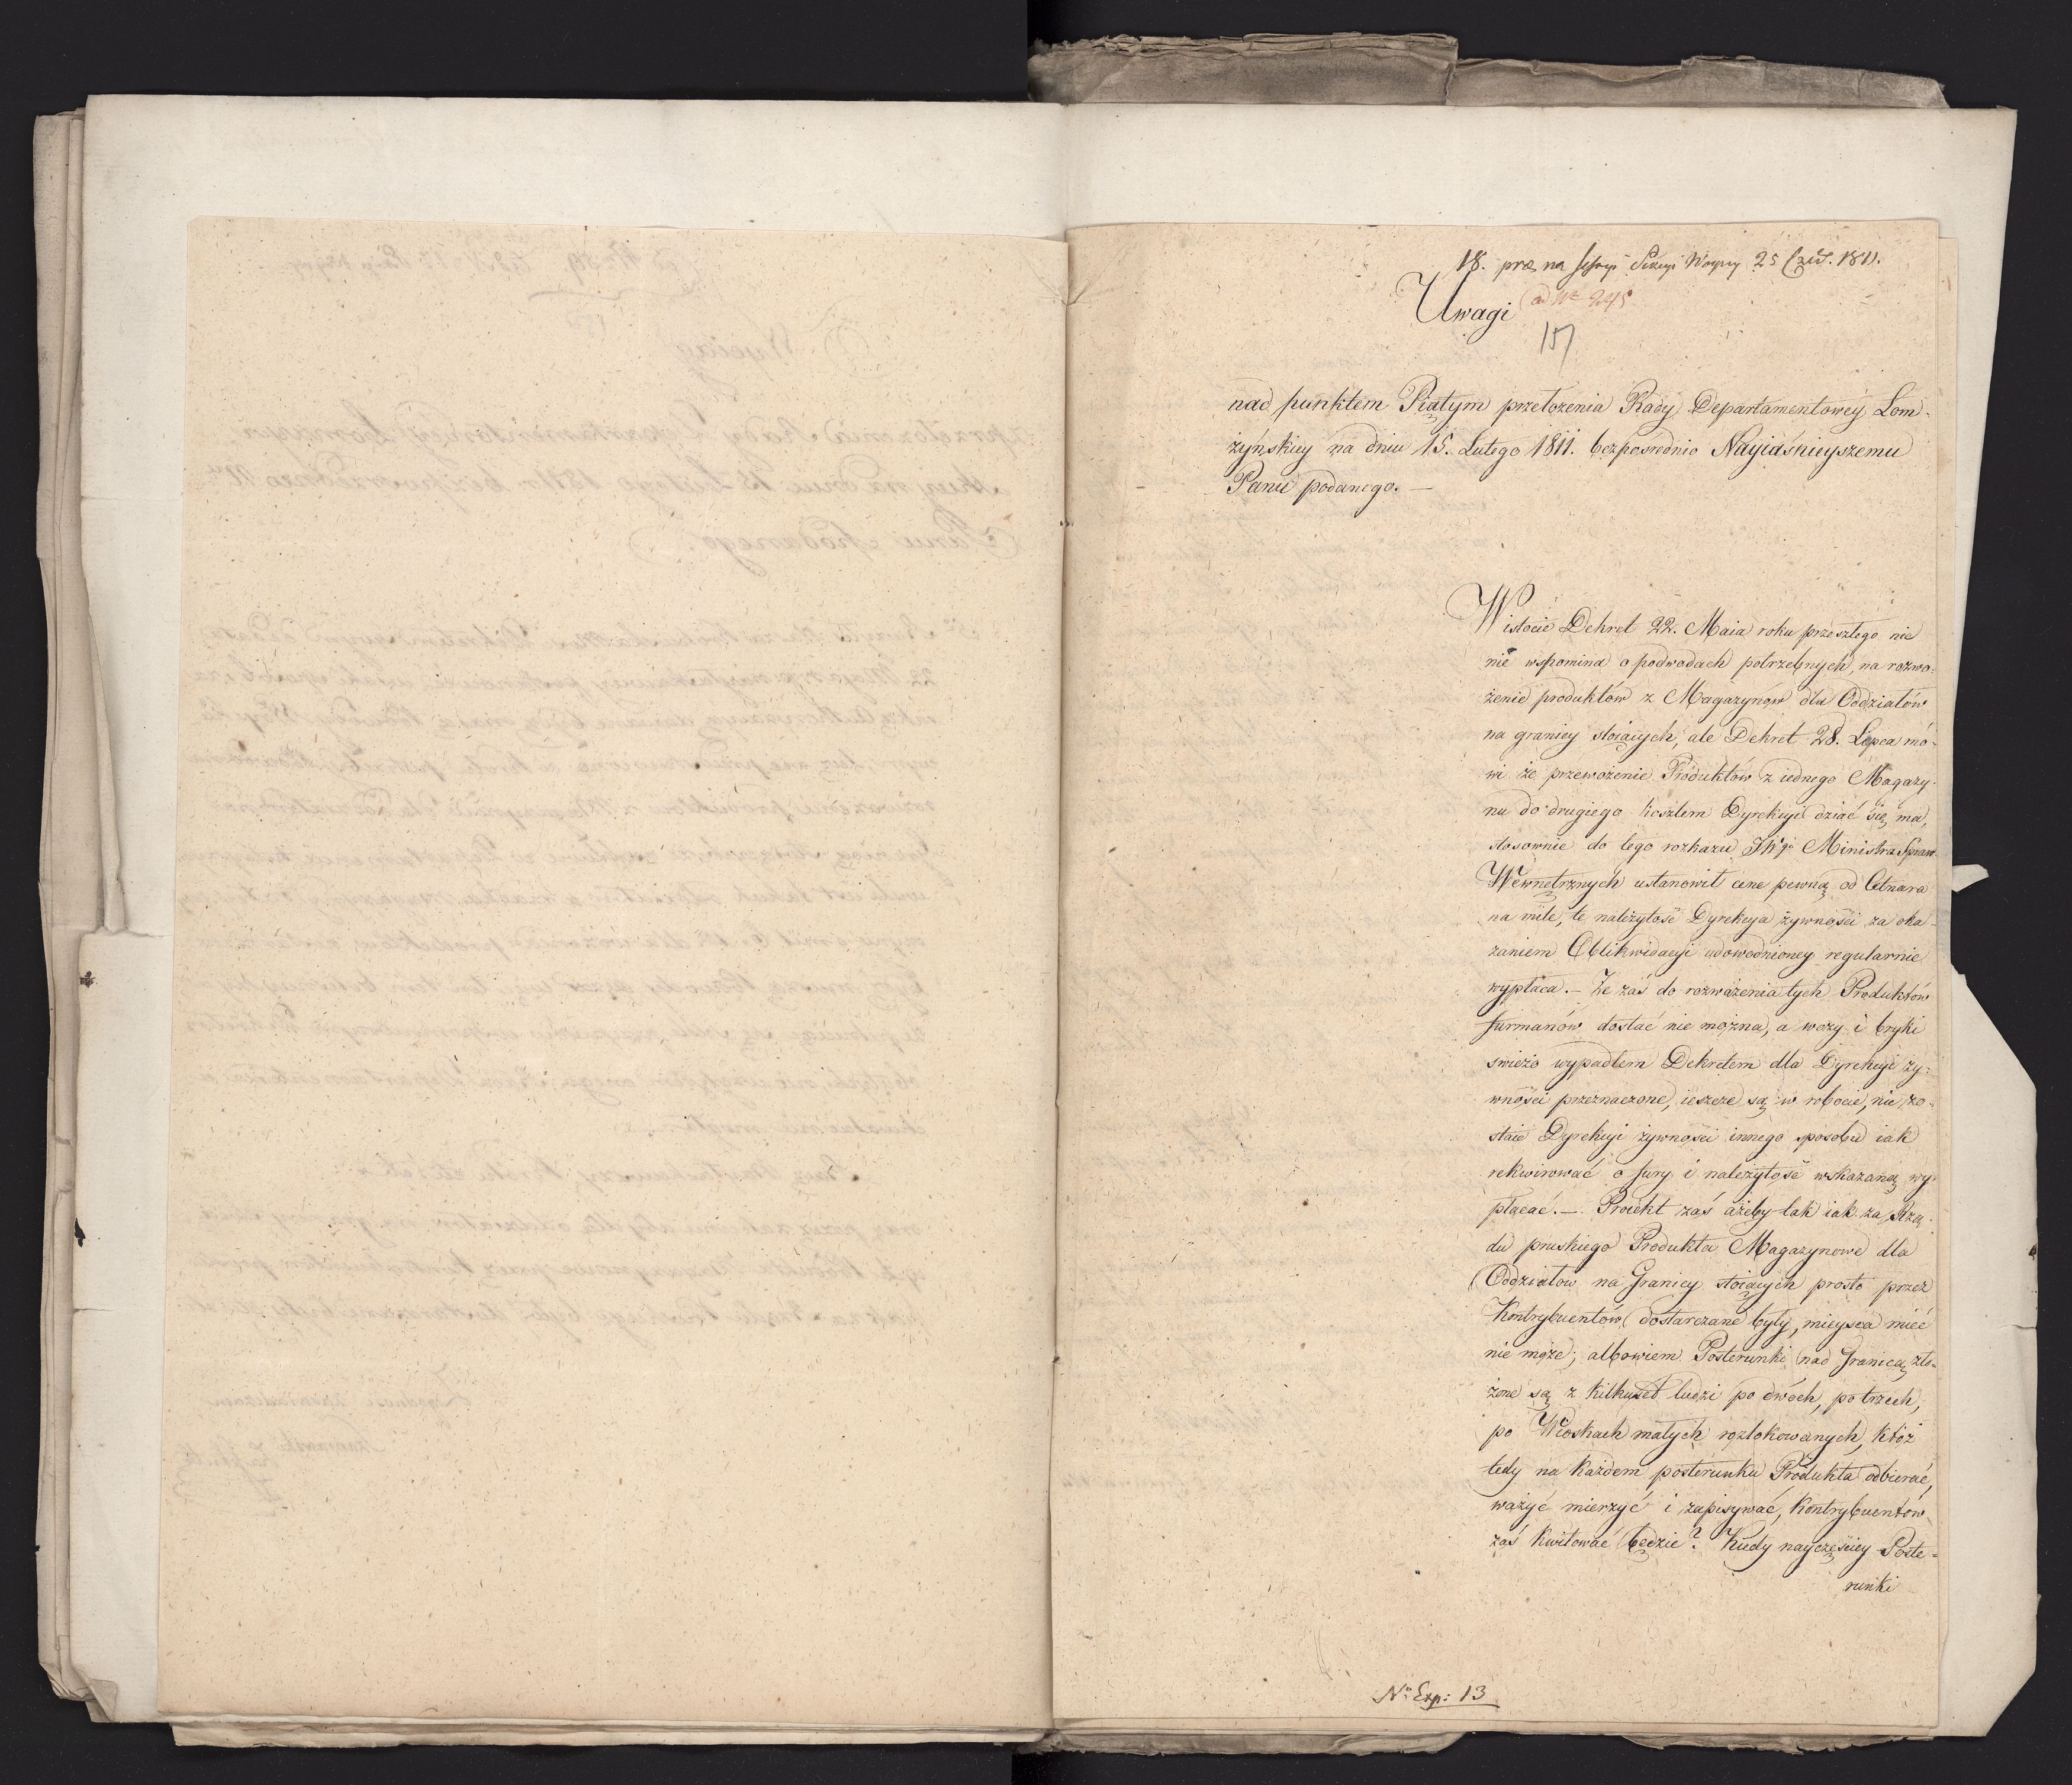 18. præs na sessyi Sekcyi Woyny 25 Czer. 1811.
Uwagi ad Nr 245
157
nad punktem Piątym przełożenia Rady Departamentowéy Łom-
żyńskiey na dniu 15. Lutego 1811. bezpośrednio Nayiaśnieyszemu
Panu podanego. —
W istocie Dekret 22. Maia roku przeszłego nie
nie wspomina o podwodach potrzebnych, na rozwo-
żenie produktów z Magazynów dla Oddziałów
na granicy stoiących, ale Dekret 28. Lipca mó-
wi że przewożenie Produktów z iednego Magazy-
nu do drugiego kosztem Dyrekcyi dziać się ma,
stosownie do tego rozkazu JWgo Ministra Spraw
Wewnętrznych ustanowił cene pewną od Cetnara
na mile, te należytość Dyrekcya żywności za oka-
zaniem Oblikwidacyi udowodnioney regularnie
wypłaca. — Że zaś do rozważenia tych Produktów
furmanów dostać nie można, a wozy i bryki
swieżo wypadłem Dekretem dla Dyrekcyi ży-
wności przeznaczone, ieszcze są w robocie, nie zo-
staie Dyrekcyi żywności innego sposobu iak
rekwirować o fury i należytość wskazaną wy-
płacać. — Proiekt zaś ażeby tak iak za Rzą-
du pruskiego Produkta Magazynowe dla
Oddziałow na Granicy stoiących prosto przez
Kontrybuentów dostarczane były, mieysca mieć
nie może; albowiem Posterunki nad Granicą zło-
żone są z kilkuset ludzi po dwóch, po trzech,
po Wioskach małych rozlokowanych, któż
tedy na każdem posterunku Produkta odbierać,
ważyć mierzyć i zapisywać, Kontrybuentów
zaś kwitować będzie? Kiedy nayczęściey Poste-
runki
No Exp: 13